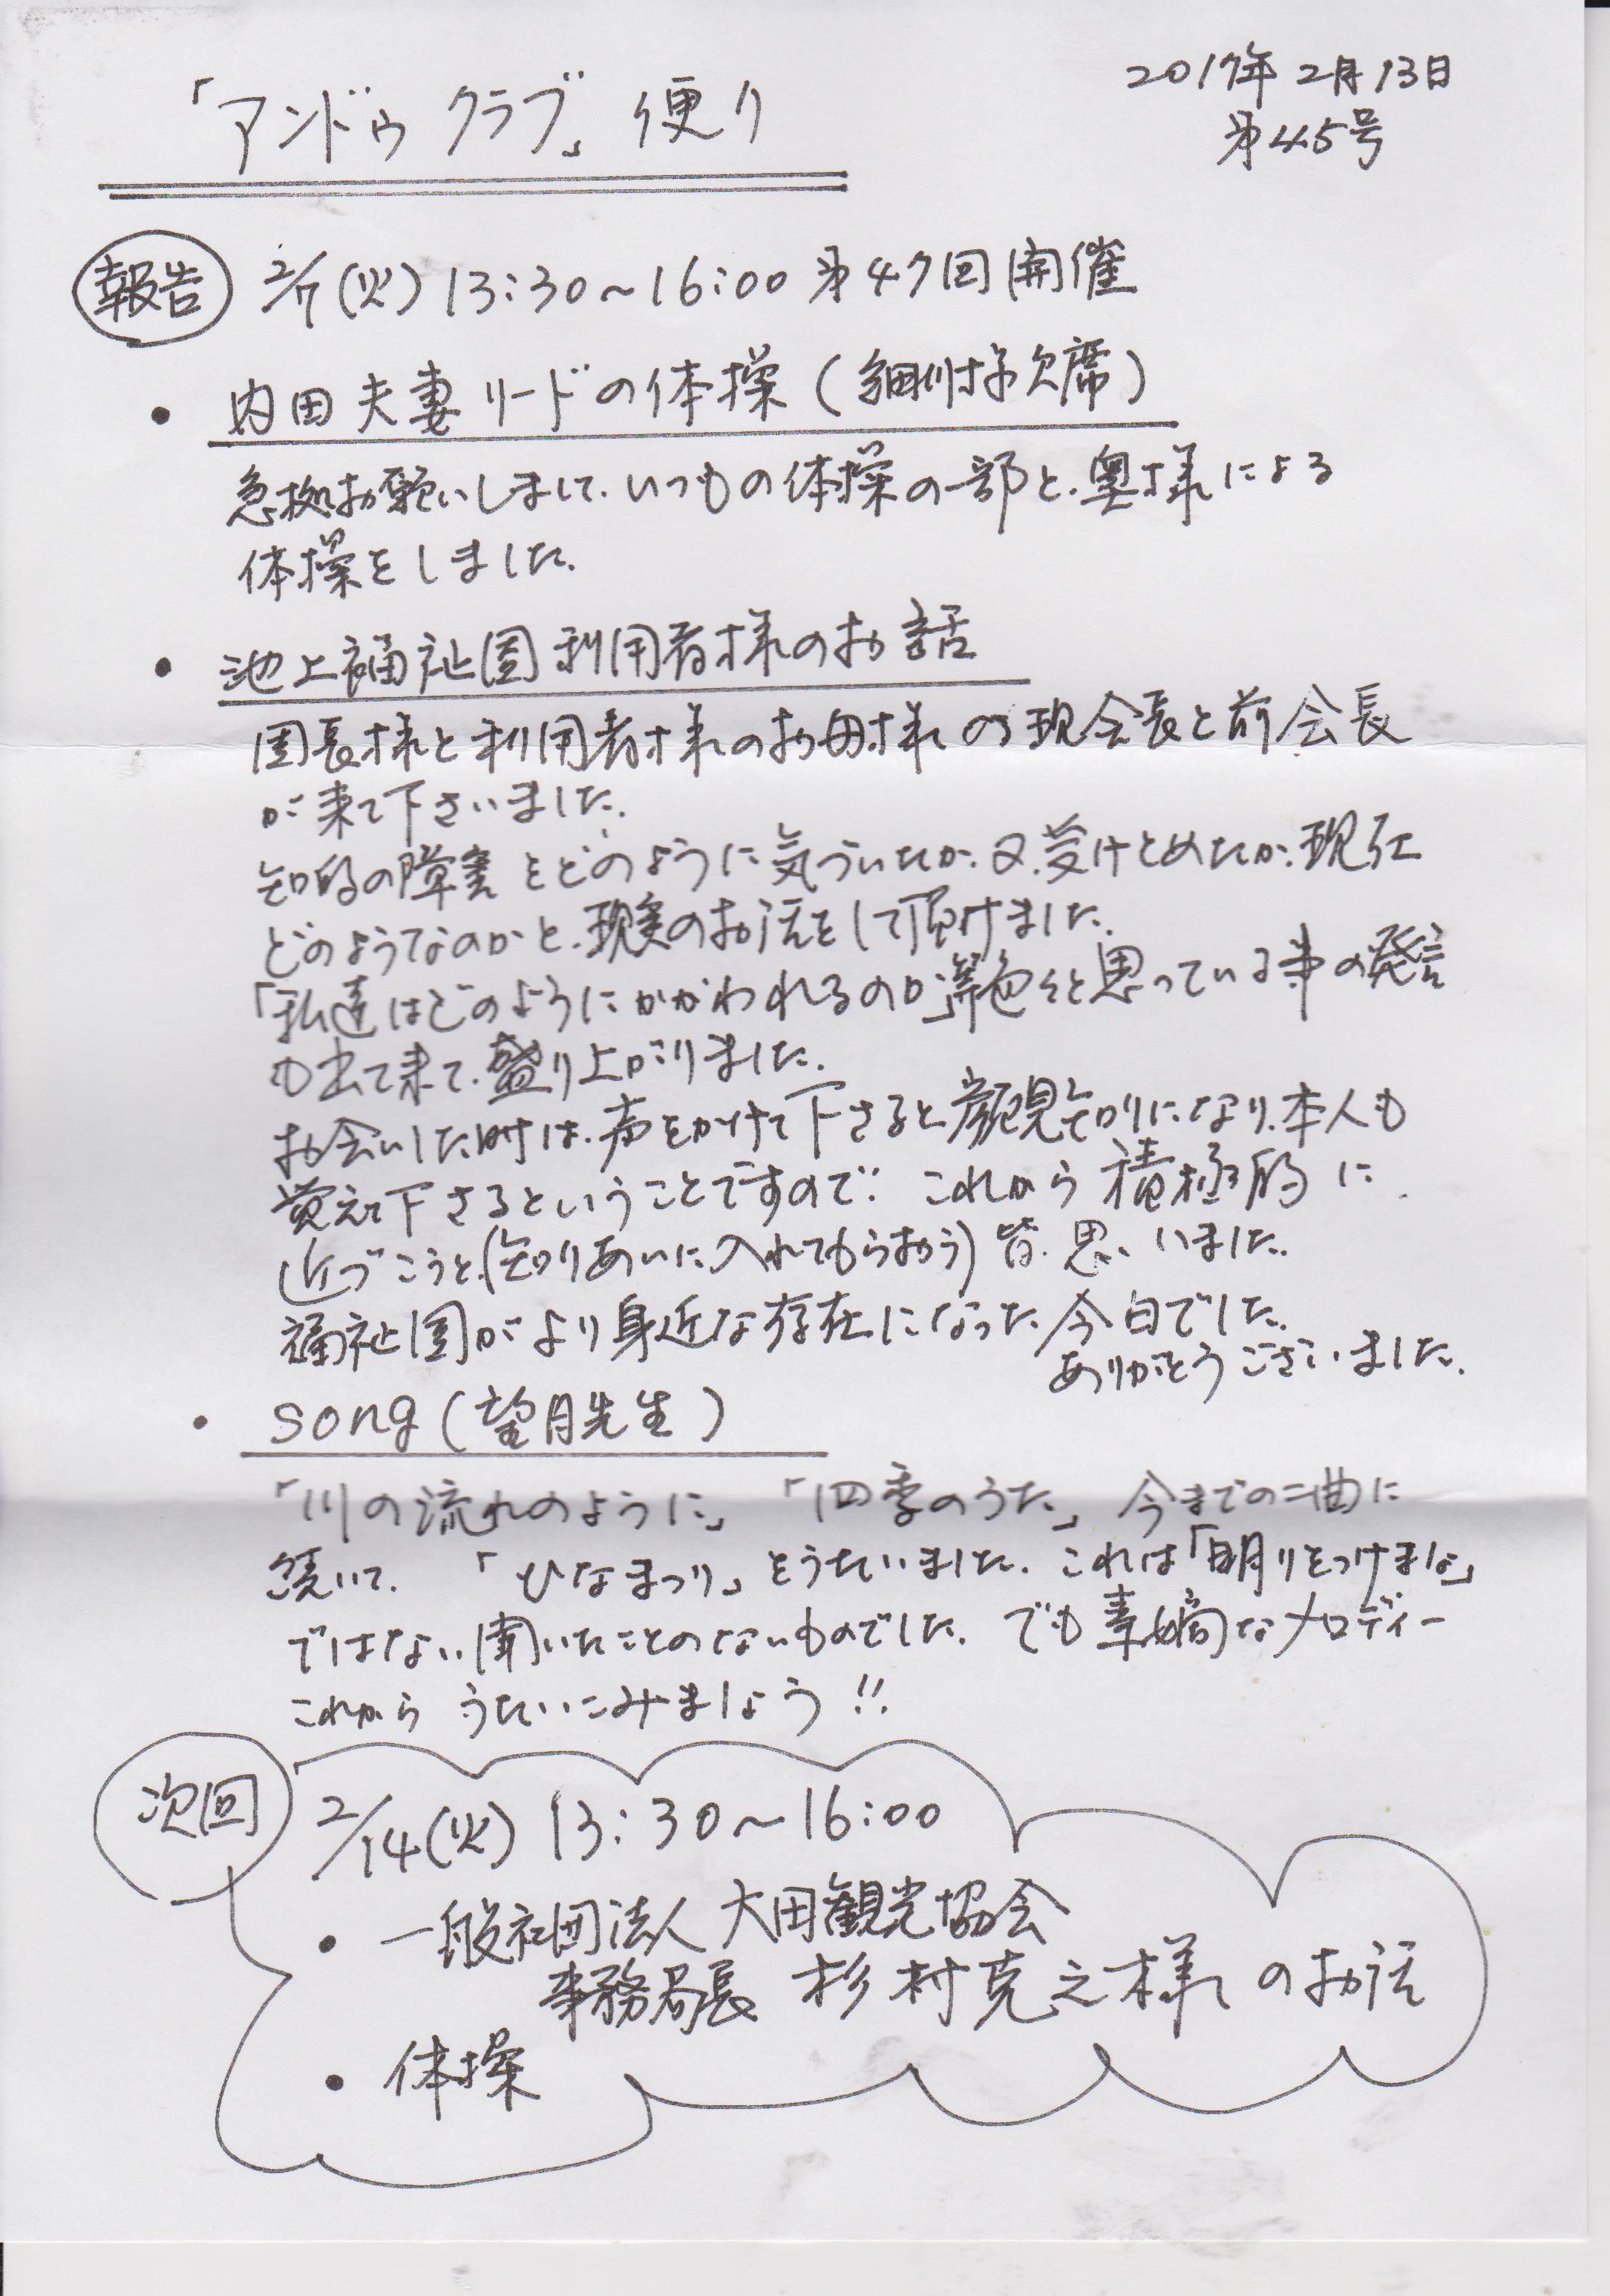 「アンドゥクラブ」便り
2017年2月13日
第45号
報告 2/7(火)13:30~16:00 第47回開催
・内田夫妻リードの体操(細川様欠席)
急拠お願いしまして、いつもの体操の一部と、奥様による
体操をしました。
・池上福祉園利用者様のお話
園長様と利用者様のお母様の現会長と前会長
が来て下さいました。
知的の障害をどのように気づいたか、又、受けとめたか、現在
どのようなのかと、現実のお話をして頂けました。
「私達はどのようにかかわれるのか」等色々と思っている事の発言
も出て来て、盛り上がりました。
お会いした時は、声をかけて下さると顔見知りになり、本人も
覚えて下さるということですので、これから積極的に
近づこうと、(知りあいに入れてもらおう)皆、思いました。
福祉園がより身近な存在になった今日でした。
ありがとうございました。
・song(望月先生)
「川の流れのように」「四季のうた」今までの二曲に
続いて、「ひなまつり」をうたいました。これは「明りをつけましょ」
ではない、聞いたことのないものでした。でも素敵なメロディー
これから うたいこみましょう!!
次回 2/14(火)13:30~16:00
・一般社団法人大田観光協会
事務局長 杉村克之様のお話
・体操